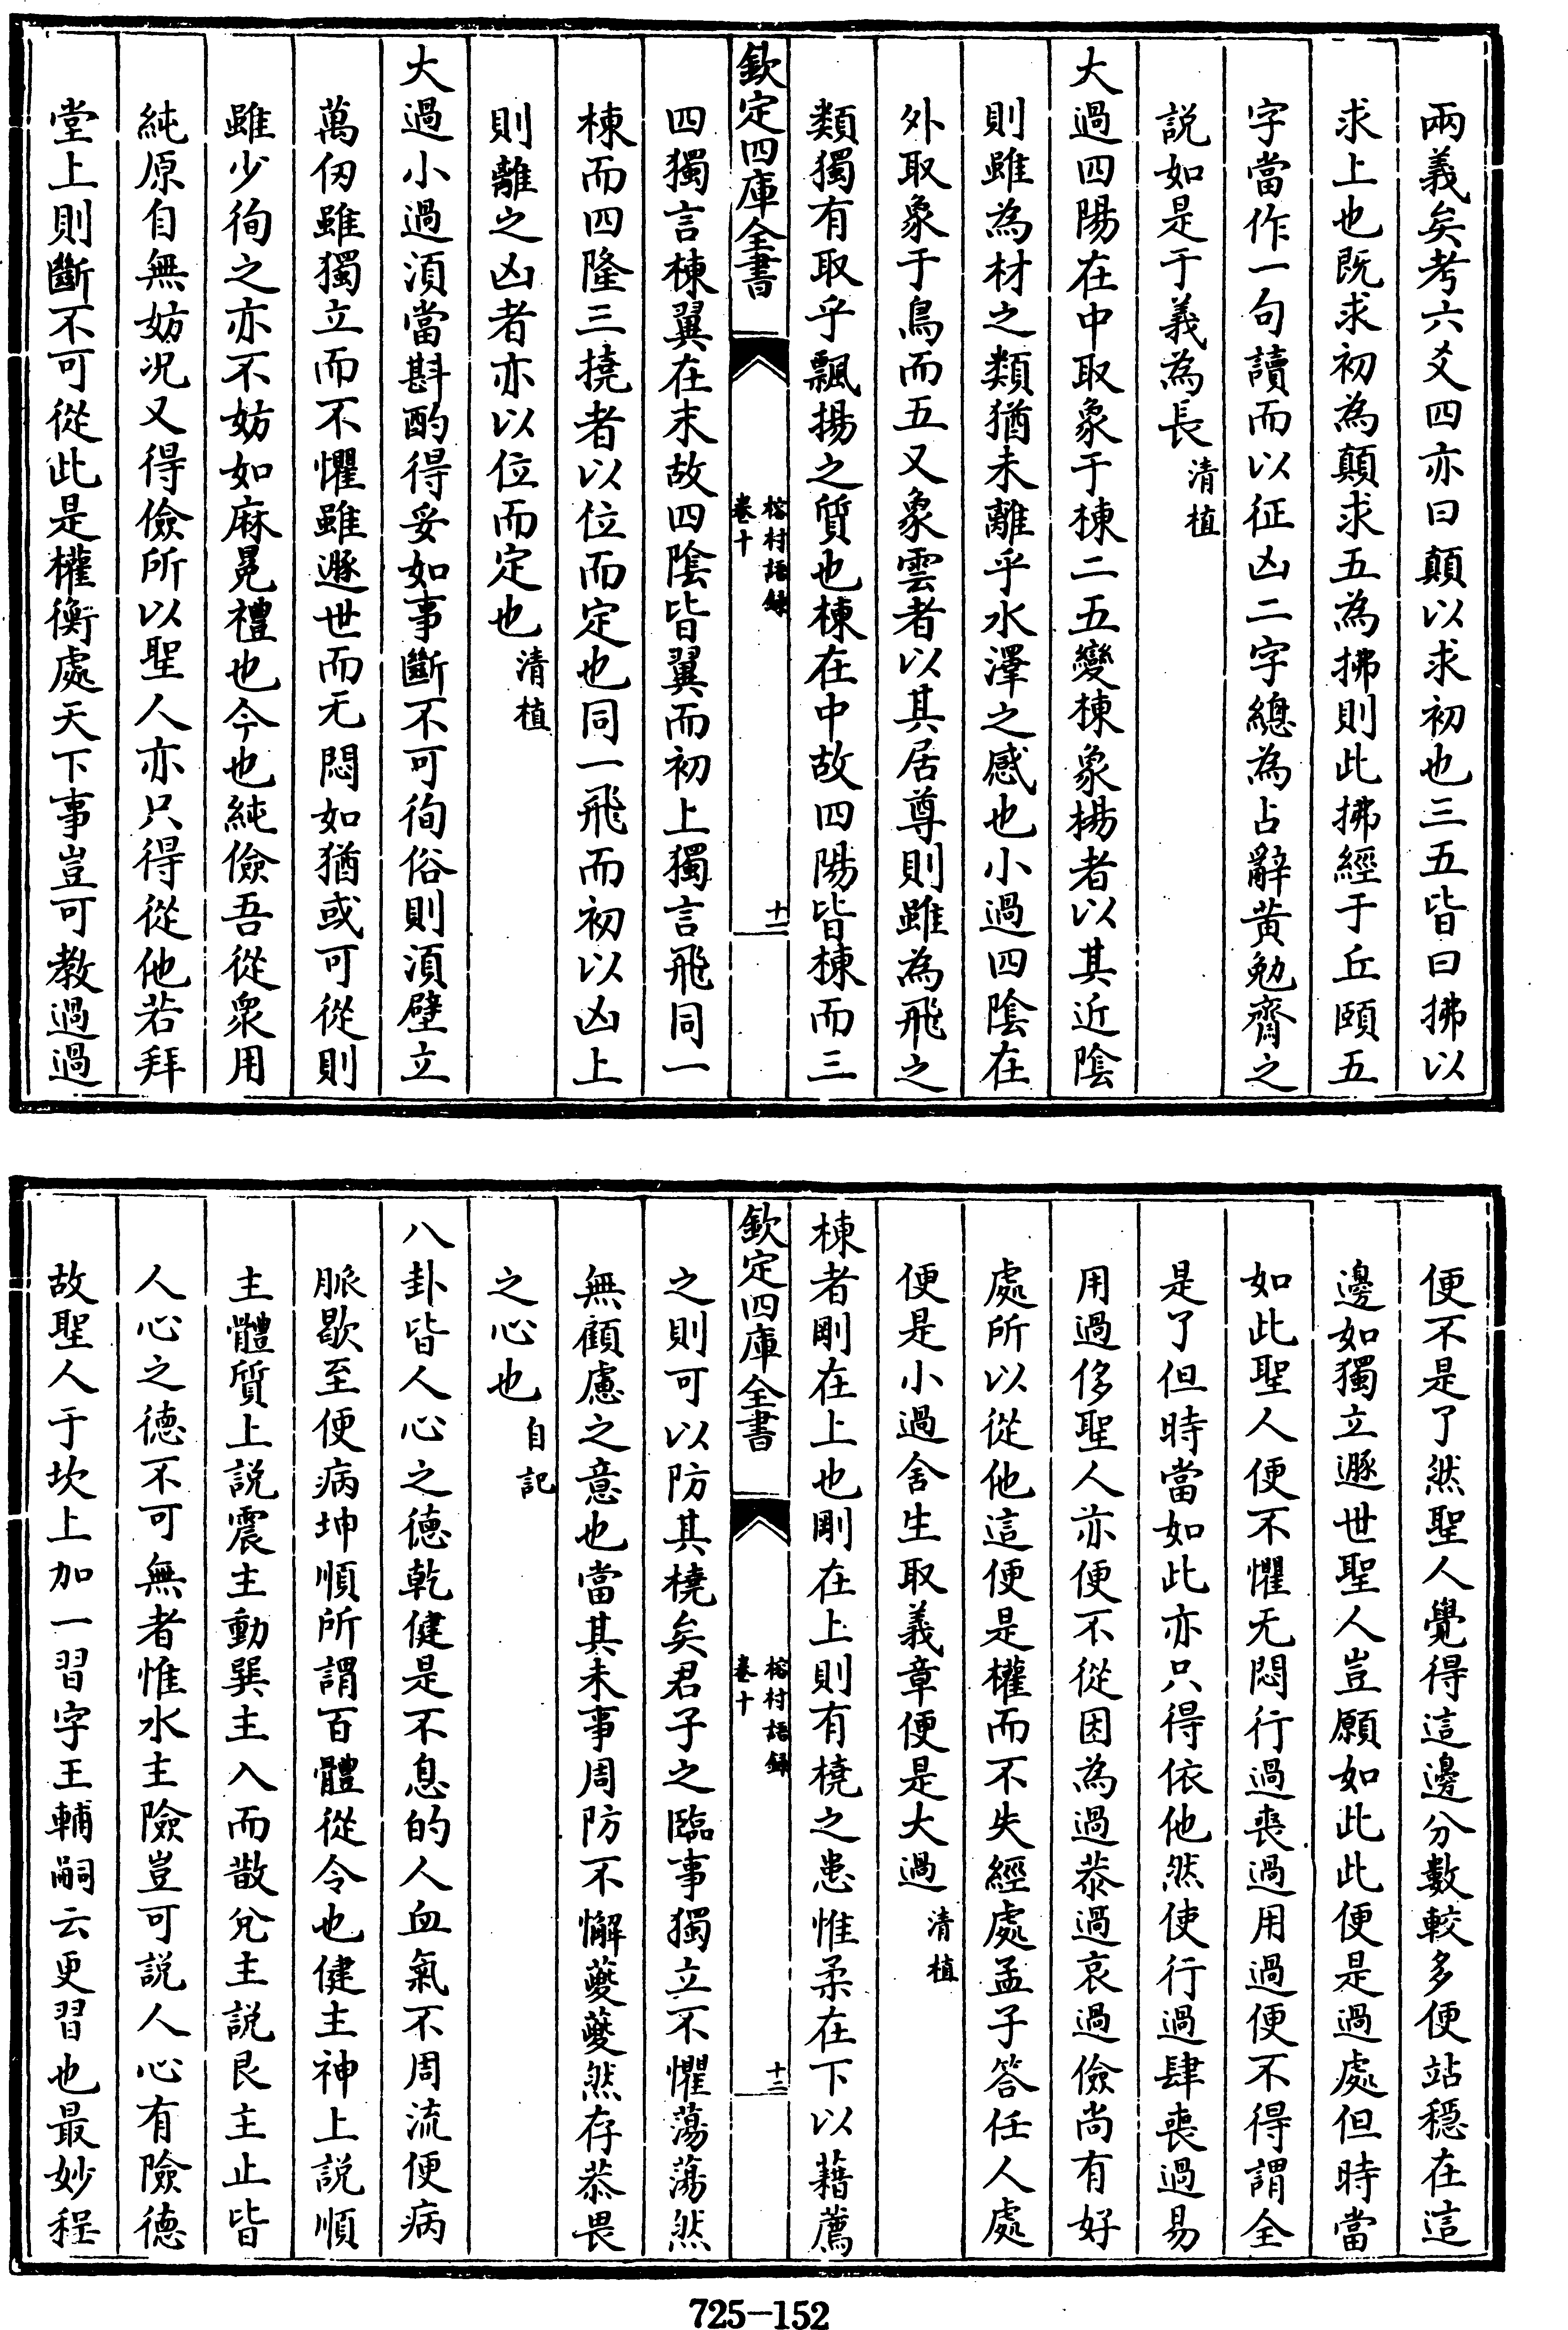 兩義矣考六爻四亦曰顛以求初也三五皆曰拂以
求上也既求初為顛求五為拂則此拂經于丘頤五
字當作一句讀而以征凶二字總為占辭黃勉齋之
說如是于義為長清植
大過四陽在中取象于棟二五變棟象楊者以其近陰
則雖為材之類猶未離乎水澤之感也小過四陰在
外取象于鳥而五又象雲者以其居尊則雖為飛之
類獨有取乎飄揚之質也棟在中故四陽皆棟而三
欽定四庫全書
榕村語錄
卷十
十一
四獨言棟翼在末故四陰皆翼而初上獨言飛同一
棟而四隆三撓者以位而定也同一飛而初以凶上
則離之凶者亦以位而定也清植
大過小過湏當斟酌得妥如事斷不可徇俗則湏壁立
萬仞雖獨立而不懼雖遯世而无悶如猶或可從則
雖少徇之亦不妨如麻冕禮也今也純儉吾從衆用
純原自無妨况又得儉所以聖人亦只得從他若拜
堂上則斷不可從此是權衡處天下事豈可教過過
便不是了然聖人覺得這邊分數較多便站穩在這
邊如獨立遯世聖人豈願如此此便是過處但時當
如此聖人便不懼无悶行過喪過用過便不得謂全
是了但時當如此亦只得依他然使行過肆喪過易
用過侈聖人亦便不從因為過恭過哀過儉尚有好
處所以從他這便是權而不失經處孟子答任人處
便是小過舍生取義章便是大過清植
棟者剛在上也剛在上則有橈之患惟柔在下以藉薦
欽定四庫全書
榕村語錄
卷十
十二
之則可以防其橈矣君子之臨事獨立不懼蕩蕩然
無顧慮之意也當其未事周防不懈夔夔然存恭畏
之心也自記
八卦皆人心之德乾健是不息的人血氣不周流便病
脈歇至便病坤順所謂百體從令也健主神上說順
主體質上說震主動巽主入而散兌主說艮主止皆
人心之德不可無者惟水主險豈可說人心有險德
故聖人于坎上加一習字王輔嗣云更習也最妙程
725-152